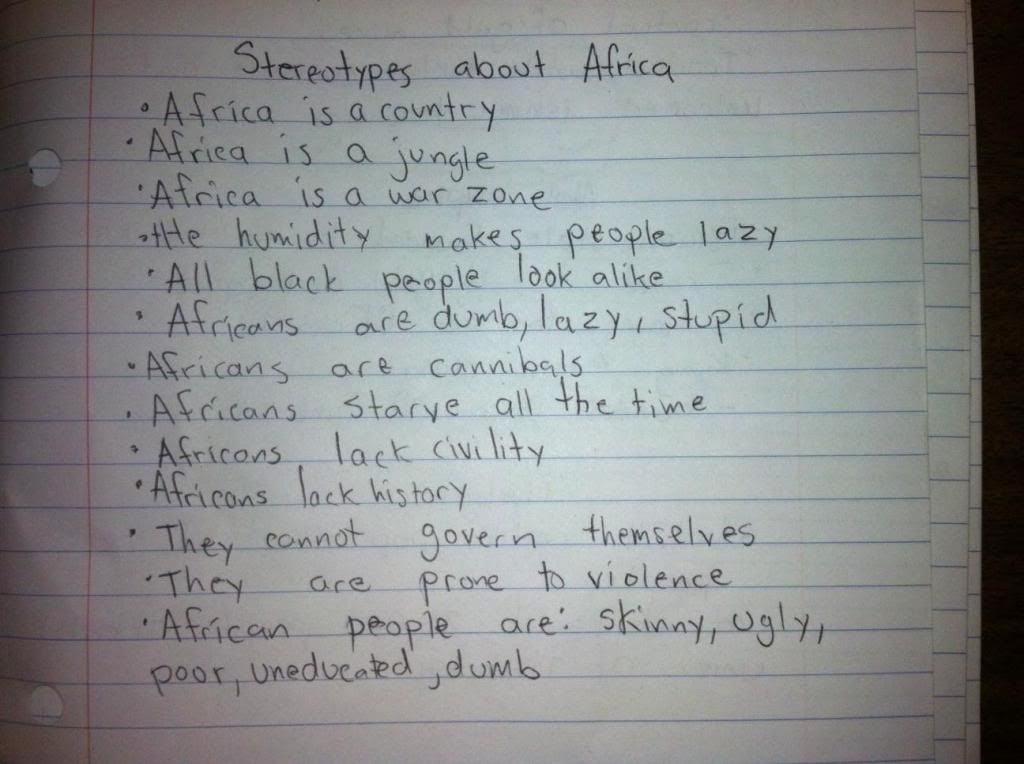 Stereotypes about Africa
• Africa is a country
• Africa is a jungle
• Africa is a war zone
• the humidity makes people lazy
• All black people look alike
• Africans are dumb, lazy, stupid
• Africans are cannibals
• Africans starve all the time
• Africans lack civility
• Africans lack history
• They cannot govern themselves
• They are prone to violence
• African people are: skinny, ugly,
poor, uneducated, dumb